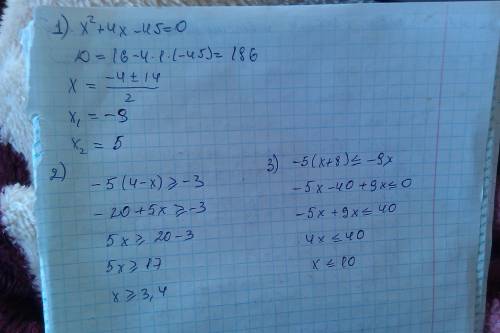 1) x²+4x-45=0
D = 16-4·1·(-45)= 186
x = (-4±14)/2
x₁ = -9
x₂ = 5
2)
-5(4-x) ≥ -3
-20+5x ≥ -3
5x ≥ 20-3
5x ≥ 17
x ≥ 3,4
3) -5(x+8) ≤ -9x
-5x-40+9x ≤ 0
-5x+9x ≤ 40
4x ≤ 40
x ≤ 10